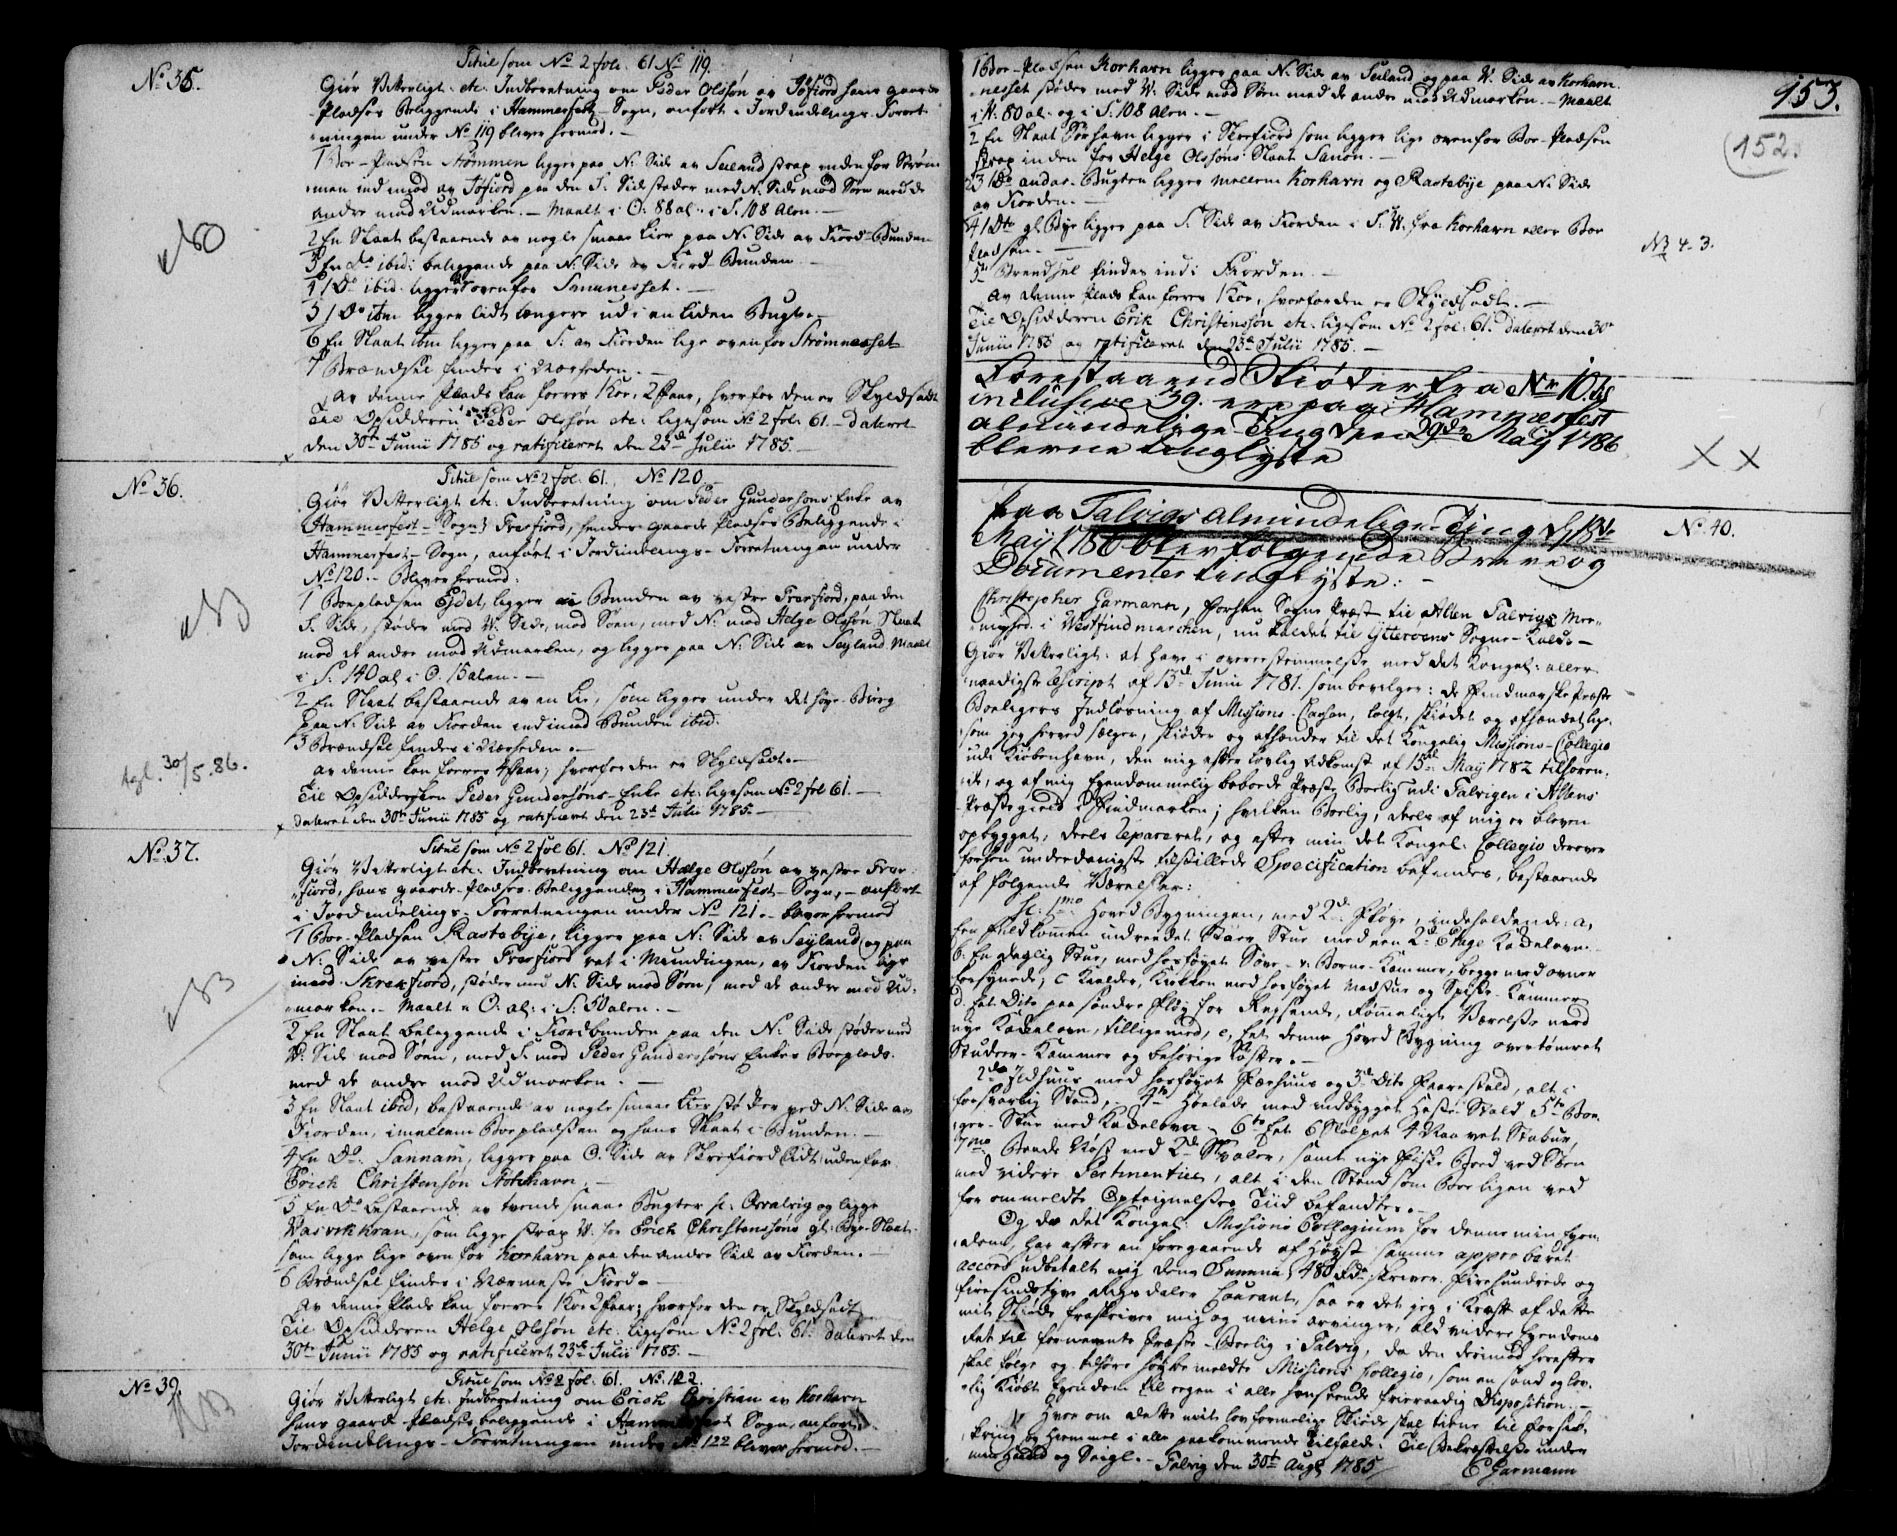 No 35.
Titul som No 2 fol. 61 No 119.
Giør Vitterligt etc: Indberetning om Peder Olssøn av Jøfiord hans gaards
Pladser Beliggende i Hammerfest Sogn, anført i Jordindelings-Forret-
ningen under No 119 bliver hermed. -
1 Boe-Pladsen Strømmen ligger paa N: Side av Seiland strax inden for Strøm-
men ind imod av Jøfiord paa den S. Side støder med N: Side mod Søen med de
andre mod Udmarken. - Maalt i O: 88 al: i S. 108 Alen. -
2 En Slaat bestaaende av nogle smaae Lier paa N: Side av Fiord-Bunden
3 En Do ibid: beliggende paa N: Side av Fiord-Bunden. -
4 1 Do ibid. ligger ovenfor Smuinesset. -
5 1 Do item ligger lidt længere ud i en liden Bugt. -
6 En Slaat item ligger paa S. av Fiorden lige ovenfor Strømnesset
7 Brændsel findes i Nærheden. -
Av denne Plads kan foeres 1 Koe, 2 Faar, hvorfor den er Skyldsadt
Til Opsidderen Peder Olssøn etc: ligesom No 2 fol: 61. - dateret
den 30te Junii 1785 og ratificeret den 23de Julii 1785. -
No 36.
Titul som No 2 fol. 61. No 120.
Giør Vitterligt etc: Indberetning om Peder Gundersøns Enke av
Hammerfest-Sogn i Træfiord, hendes gaards Pladser Beliggende i
Hammerfest-Sogn, anført i Jordindelings-Forretningen under
No 120. - Bliver hermed:
1 Boepladsen Ejdet, ligger i Bunden av vestre Træfiord, paa den
S. Side, støder med V. Side, mod Søen, med N: mod Helge Olssøn Slaat
med de andre mod Udmarken, og ligger paa N: Side av Seyland Maalt
i S. 140 al i O. 15 alen. -
2 En Slaat bestaaende av en Lie, som ligger under det høye Bierg
paa N: Side av Fiorden ind imod Bunden ibid.
3 Brændsel findes i Nærheden. -
Av denne kan foeres 4 Faar; hvorfor den er Skyldsadt. -
Til Opsiddersken Peder Gundersøns-Enke etc: ligesom No 2 fol 61. -
dateret den 30te Junii 1785 og ratificeret den 23de Julii 1785. -
tgl. 30/5.86.
No 37.
Titul som No 2 fol 61. No 121.
Giør Vitterligt etc: Indberetning om Helge Olssøn av vestre Træ-
fiord, hans gaards-Pladser Beliggende i Hammerfest-Sogn, - anført
i Jordindelings-Forretningen under No 121. - bliver hermed
1 Boe-Pladsen Rastebÿe, ligger paa N: Side av Seyland og paa
N: Side av vestre Træfiord ret i Mundingen, av Fiorden lige
imod Skrefiord, støder med N: Side mod Søen, med de andre mod Ud-
marken. - Maalt i O: al: i S. 50 alen. -
2 En Slaat Beliggende i Fiordbunden paa den N: Side støder med
V: Side mod Søen, med S. mod Peder Gunderssøns Enkes Boeplads.
med de andre mod Udmarken. -
3 En Slaat ibid, bestaaende av nogle smaae Lier ved N: Side av
Fiorden, imellem Boepladsen og hans Slaat i Bunden. -
4 En Do. Sannam, ligger paa O. Side av Skrefiord lidt udenfor
Erich Christensøn Korhavn. -
5 En Do bestaaende av tvende smaae Bugter og ligge
som ligge strax V: for Erich Christenssøns gl: Bye-Slaat.
som ligge lige over for Korhavn paa den andre Side av Fiorden. -
6 Brændsel findes i Nærmeste Fiord. -
Av denne Plads kan foeres 1 Koe 2 Faar; hvorfor den er Skyldsadt
Til Opsidderen Helge Olssøn etc: ligesom No 2 fol: 61. dateret den
30te Junii 1785 og ratificeret 23de Julii 1785. -
No 39.
Titul som No 2 fol. 61. No. 122.
Giør Vitterligt etc. Indberetning om Erich Christian av Korhavn
hans gaards-Pladser beliggende i Hammerfest Sogn, anført i
Jordindelings-Forretningen under No 122 bliver hermed. -
153.
152.
1 Boe-Pladsen Korhavn ligger paa N: Side av Seiland og paa V. Side av Korhavn-
nesset støder med V: Side mod Søen med de andre mod Udmarken. - Maalt
i V: 80 al. og i S: 108 Alen. -
2 En Slaat Sørhavn ligger i Skrefiord som ligger lige ovenfor Boe-Pladsen
strax inden for Helge Olssøns Slaat Sanøn. -
3 1 Do anden Bugten ligger mellem Korhavn og Rastebÿe paa N: Side
av Fiorden. -
4 1 Dto gl. Bye ligger paa S. Side av Fiorden i S. V. fra Korhavn eller Boe
Pladsen. -
5te Brendsel findes ind i Fiorden. -
Av denne Plads kan foeres 1 Koe, hvorfor den er Skyldsadt. -
Til Opsidderen Erik Christenssøn etc: ligesom No 2 fol: 61. dateret den 30te
Junii 1785 og ratificeret den 23de Julii 1785. -
NB 4-3.
Forestaaend Skiøder fra No 10. til
inclusive 39. ere paa Hammerfest
almindelige Ting den 29de Maij 1786
blevne tinglyste
X X
No. 40.
Paa Talvigs almindelige Ting d. 13de
Maij 1786 blev følgende Breve og
Documenter tinglyste: -
Christopher Garmann, forhen Sogne Præst til Alten Talvigs Me-
nighed i Westfindmarchen, nu kaldet til Ytterøens Sogne-Kald. -
Giør Vitterligt: at have i overeensstemmelse med det Kongel: aller-
naadigste Rescript af 13de Junii 1781. som bevilger: de Findmarkske Præste
Boeligers Indløsning af Missions-Cassen, solgt, skiødet og afhændet lige-
som jeg herved sælger, skiøder og afhænder til det Kongelig Missions-Collegio
udi Kiøbenhavn, den mig efter lovlig adkomst af 15de Maij 1782 tilhøren-
de, og af mig Ejendommelig beboede Præste Boelig udi Talvigen i Altens
Præstegield i Findmarken; hvilken Boelig, deels af mig er bleven
opbygget, deels repareret, og efter min det Kongel: Collegio derover
forhen underdanigste tilstillede Specification befindes, bestaaende
af følgende Værelser:
1mo Hoved Bygningen, med 2de Fløye, indeholdende: a,
Een Fuldkommen indreedet Stoer Stue med een 2de Etage Kackelovn.
b. En daglig Stue, med hosføyet Sove- og Borne-Kammer, begge med ovner
forsynede, c Kielder, Kiøkken med hosføyet Madstue og Spise-Kammer
d. Et Dito paa søndre Fløy for Reysende, rømmeligt Værelse med
nye Kackelovn, tillige med, e, Et denne Hoved Bygning overtømret
Studere-Kammer og behørige Loftter. -
2do Ildhuus med hosføyet Fæehuus og 3de Dito Faarestald, alt i
forsvarlig Stand, - 4to Høelade med indbygget Heste-Stald 5te Bor-
ger-Stue med Kackelovn - 6te Et 6 Stolpet 4 Raavet Stabur,
7mo Baade Nøst med 2de Svaler, samt nye Fiske Boed ved Søen
med videre Pertinentier, alt i den Stand som Boeligen ved
forommeldte Opteignelses Tiid befandtes. -
Og da det Kongel: Missions Collegium for denne min Eyen-
dom, har efter en foregaaende af Høyst samme approberet
accord udbetalt mig den Summa 480 Rd. skriver: Firehundrede og
firesindstyve Rigsdaler Courant, saa er det jeg i Kraft af dette
mit Skiøde fraskriver mig og mine arvinger, ald videre Eyendoms
Ret til fornævnte Præste-Boelig i Talvig, da den derimod herefter
skal følge og tilhøre høybemeldte Missions Collegio, som en sand og lov-
lig Kiøbt Eyendom til egen i alle henseende frieraadig Disposition. -
Hvor om dette mit lovformelige Skiøde skal tiene til forsik-
kring og Hiemmel i alle paakommende Tilfælde. Til Bekræftelse under
min Haand og Seigl. - Talvig den 30te Augt 1785
C Garmann